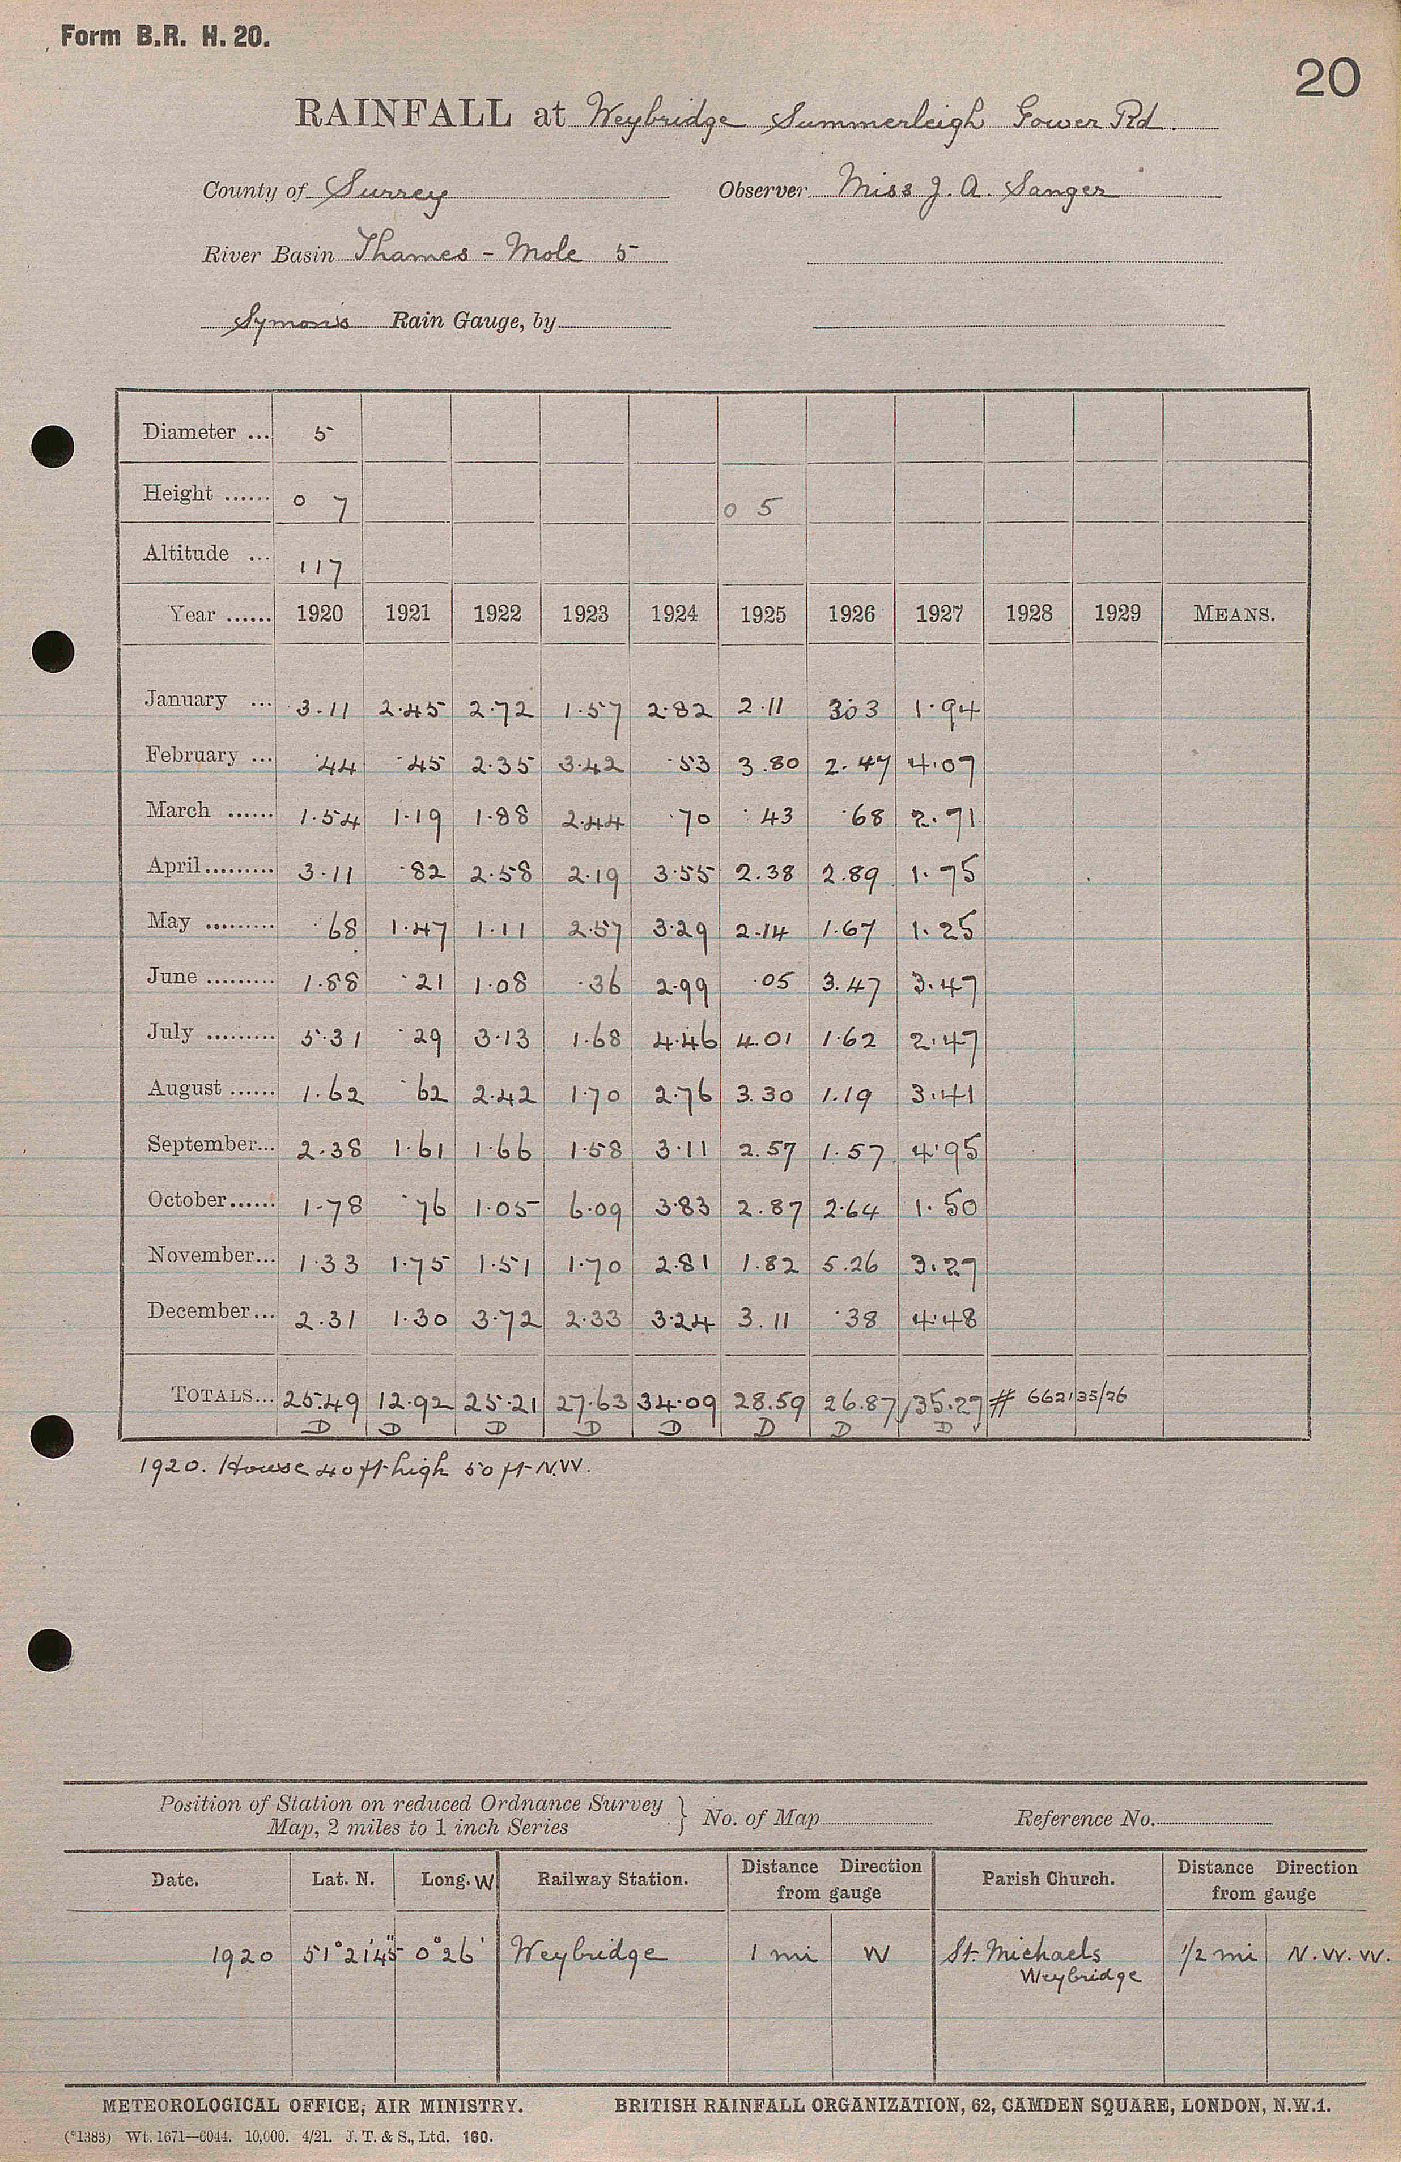 Form B.R. H. 20.
20
RAINFALL at Weybridge Summerleigh Gower Rd.
County of Surrey Observer Miss J. A. Sanger
River Basin Thames - Mole 5
Symons Rain Gauge, by
Diameter ... 5
Height ...... 0 7 0 5
Altitude ... 117
Year ...... 1920 1921 1922 1923 1924 1925 1926 1927 1928 1929 MEANS.
January ... 3.11 2.45 2.72 1.57 2.82 2.11 3.03 1.94
February ... .44 .45 2.35 3.42 .53 3.80 2.47 4.07
March ...... 1.54 1.19 1.88 2.44 .70 .43 .68 2.71
April ......... 3.11 .82 2.58 2.19 3.55 2.38 2.89 1.75
May ......... .68 1.47 1.11 2.57 3.29 2.14 1.67 1.25
June ......... 1.88 .21 1.08 .36 2.99 .05 3.47 3.47
July ......... 5.31 .29 3.13 1.68 4.46 4.01 1.62 2.47
August ...... 1.62 .62 2.42 1.70 2.76 3.30 1.19 3.41
September... 2.38 1.61 1.66 1.58 3.11 2.57 1.57 4.95
October...... 1.78 .76 1.05 6.09 3.83 2.87 2.64 1.50
November... 1.33 1.75 1.51 1.70 2.81 1.82 5.26 3.27
December... 2.31 1.30 3.72 2.33 3.24 3.11 .38 4.48
TOTALS... 25.49 12.92 25.21 27.63 34.09 28.59 26.87 35.27 # 662135/26
D D D D D D D D
1920. House 40 ft high 50 ft N.W.
Position of Station on reduced Ordnance Survey
Map, 2 miles to 1 inch Series } No. of Map Reference No.
Date. Lat. N. Long. W Railway Station. Distance Direction from gauge Parish Church. Distance Direction from gauge
1920 51°21'45" 0°26' Weybridge 1 mi W St. Michaels Weybridge 1/2 mi N.W.W.
METEOROLOGICAL OFFICE, AIR MINISTRY. BRITISH RAINFALL ORGANIZATION, 62, CAMDEN SQUARE, LONDON, N.W.1.
(*1383) Wt. 1671—6044. 10,000. 4/21. J. T. & S., Ltd. 160.